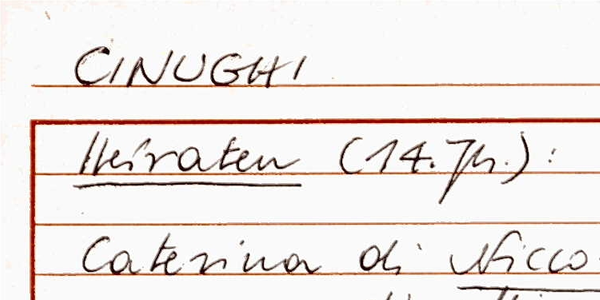 CINUGHI
Heiraten (14. Jh.):
Caterina di Nicco-